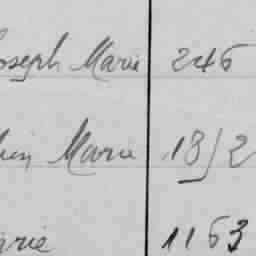 Joseph Marie 246
Marie 1852
Marie 1163